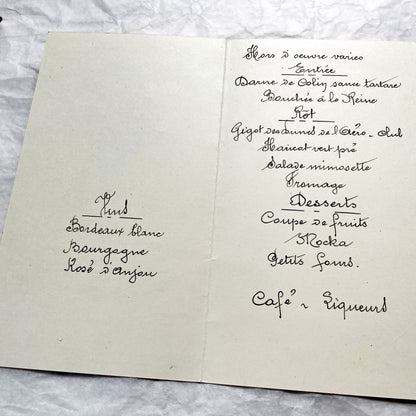 Vins
Bordeaux blanc
Bourgogne
Rosé d'Anjou
Hors d'oeuvre varies
Entrée
Darne de Colin sauce tartare
Bouchée à la Reine
Rôt
Gigot des Dunes de l'Aéro-Club
Haricot vert pré
Salade mimosette
Fromage
Desserts
Coupe de fruits
Mocka
Petits fours.
Café ~ Liqueurs